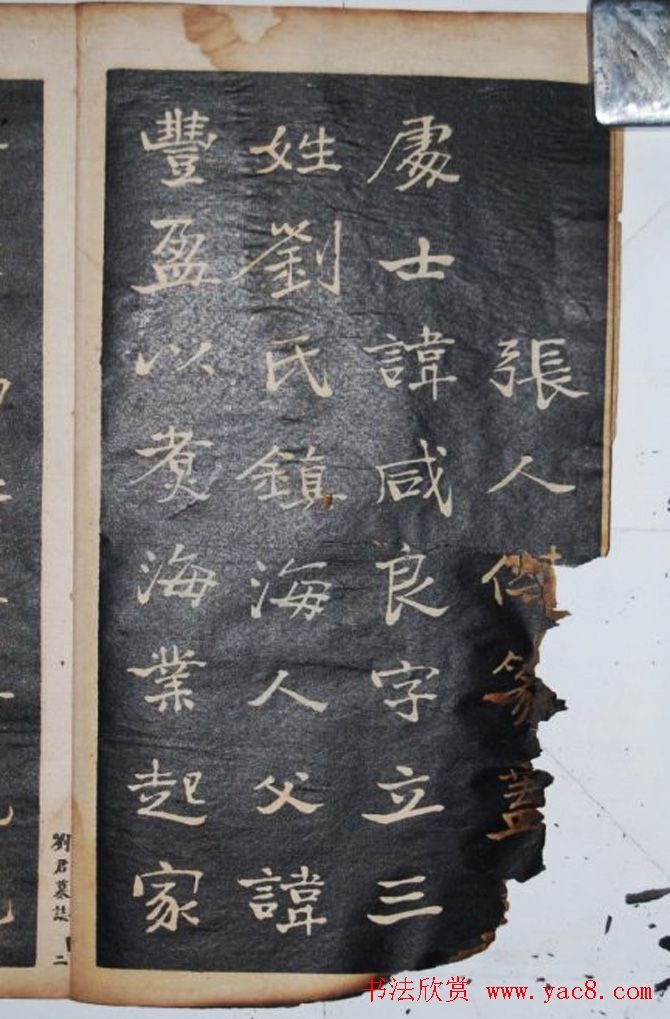 張人傑篆蓋
處士諱咸良字立三
姓劉氏鎮海人父諱
豐盈以煑海業起家
劉君墓誌 二
书法欣赏 www.yac8.com